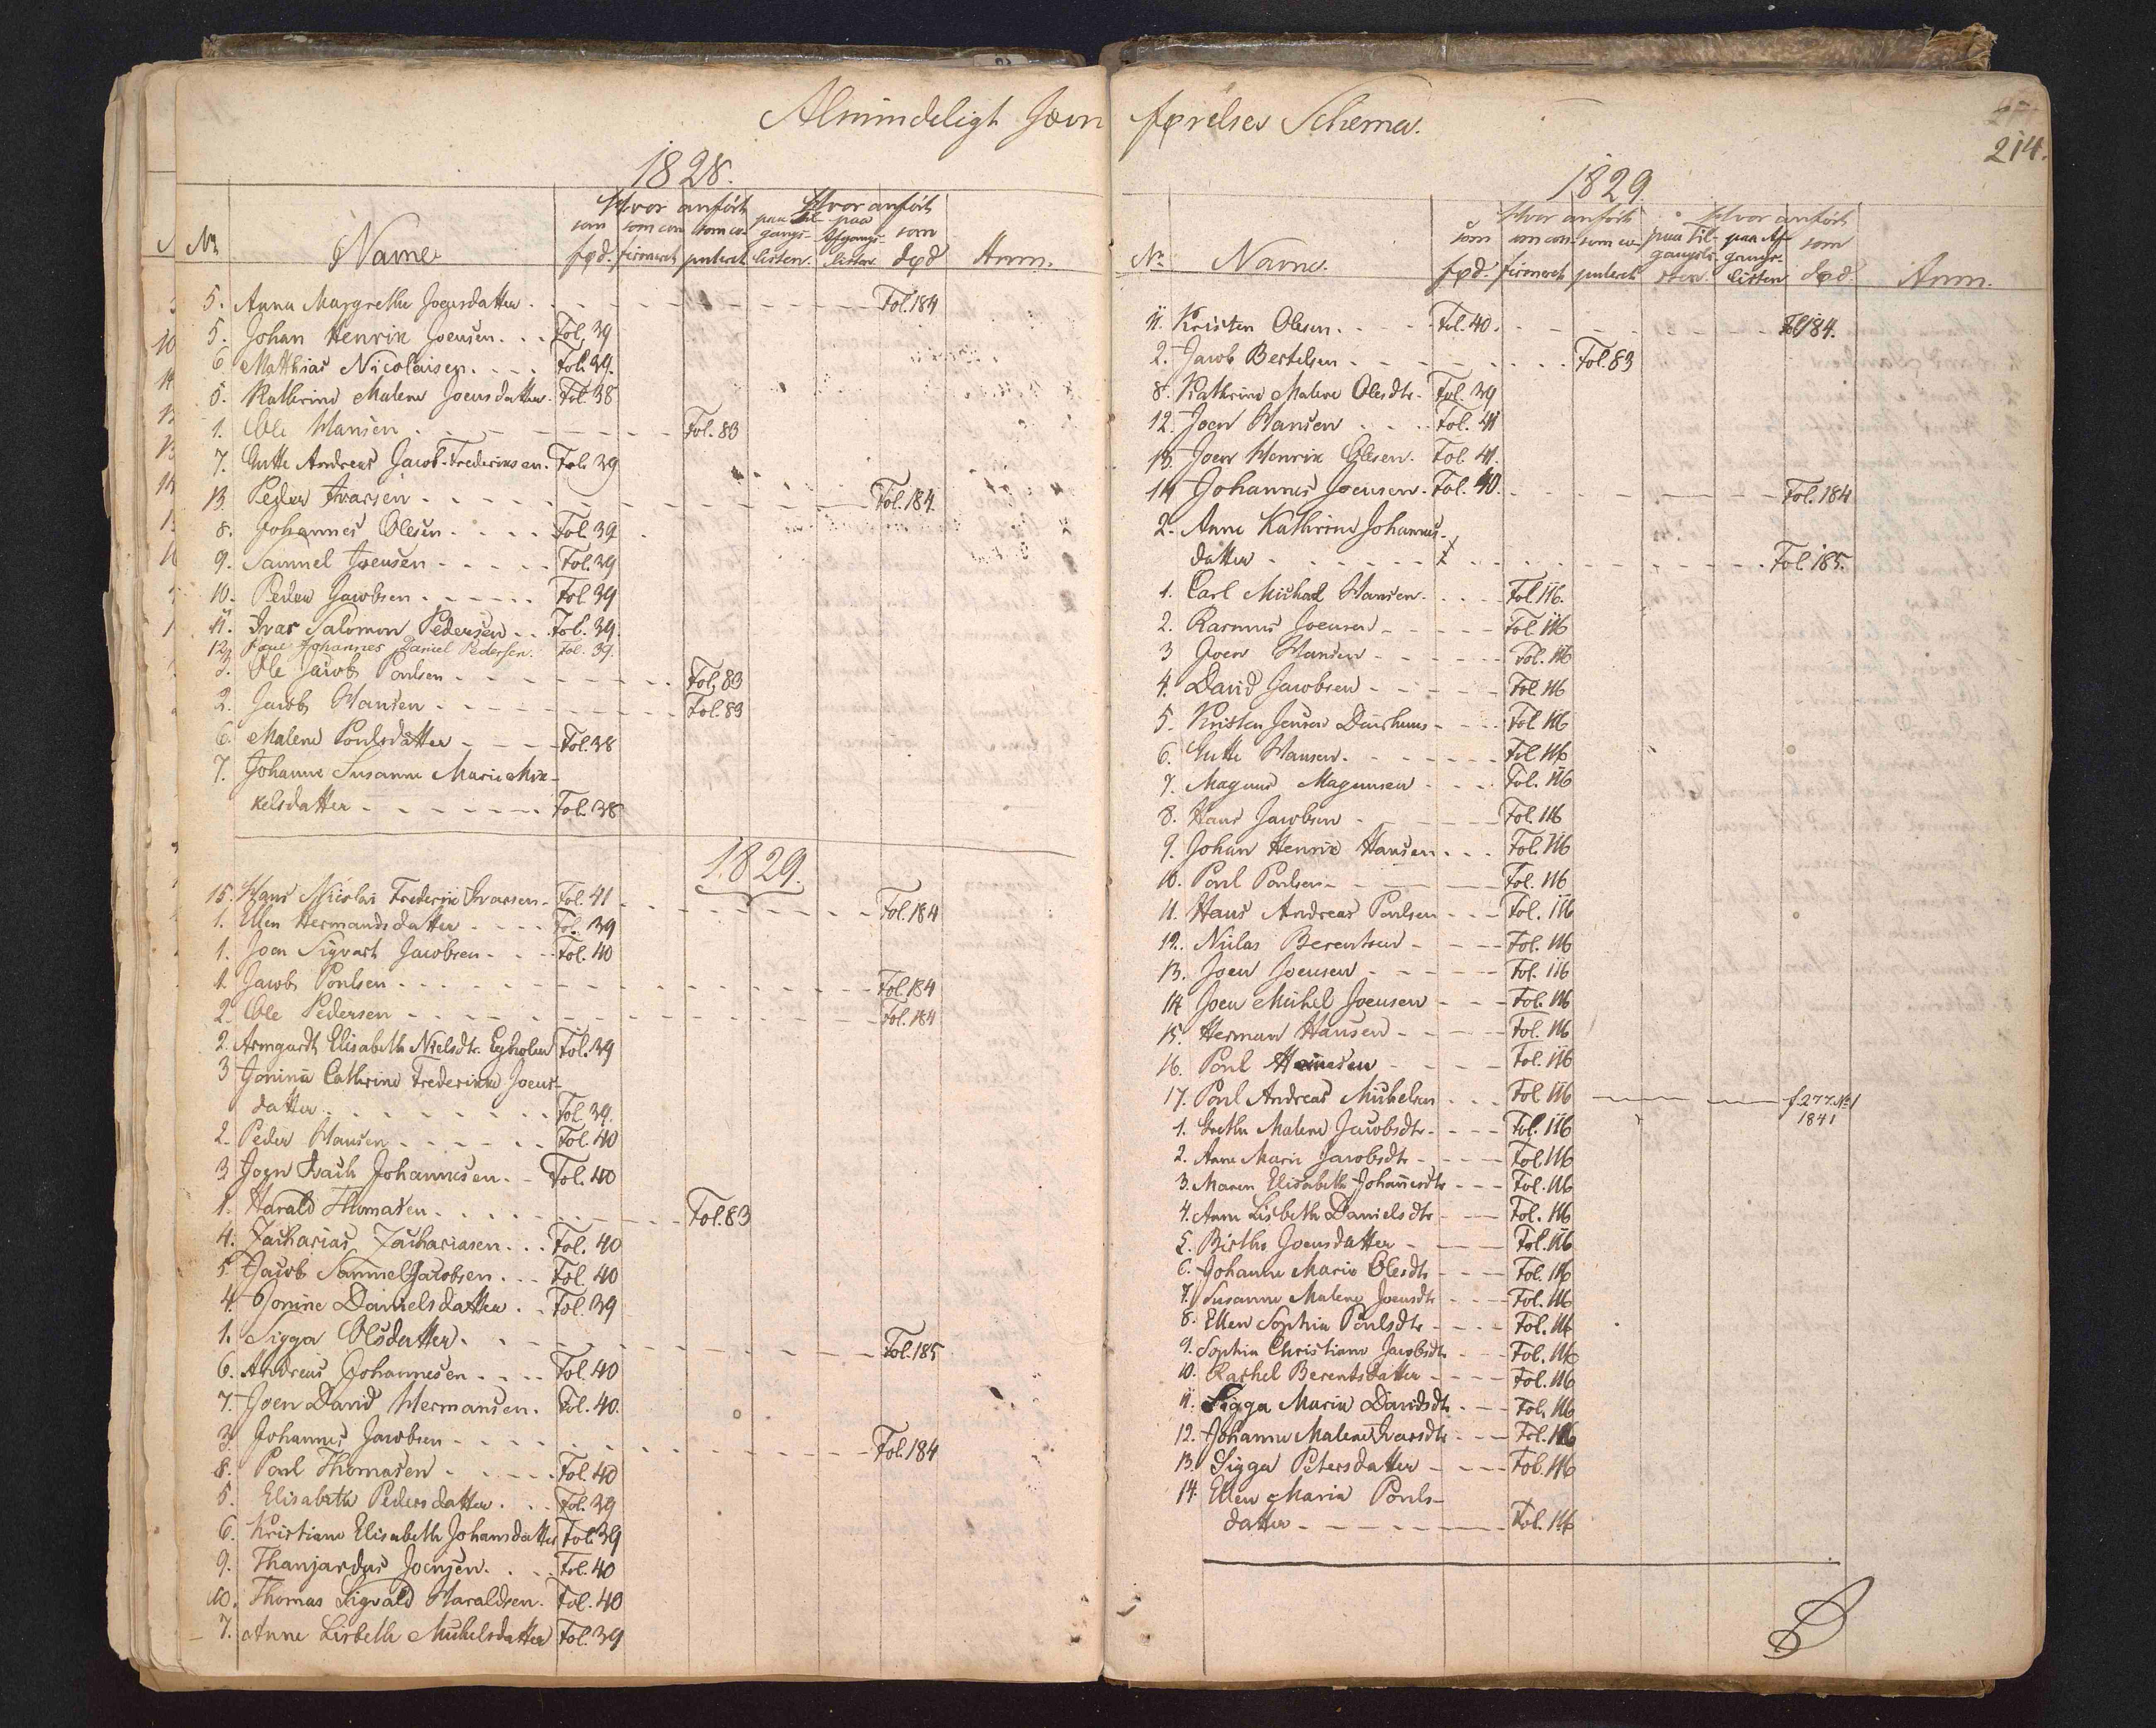 Almindeligt Jævn førelses Schema.
214.
1828.
Hvor anført Hvor anført
No Navne som fød. som confirmeret som copuleret paa Tilgangslisten paa Afgangslisten som død Anm.
5. Anna Margrethe Joensdatter Fol. 184
5. Johan Henrik Joensen Fol. 39
6 Matthias Nicolaisen Fol. 39.
5. Kathrine Malene Joensdatter Fol. 38
1. Ole Hansen Fol. 83
7. Gutte Andreas Jacob-Frederiksen Fol. 39
13. Peder Ivarsen Fol. 184.
8. Johannes Olesen Fol. 39
9. Samuel Joensen Fol. 39
10. Peder Jacobsen Fol. 39
11. Ivar Salomon Pedersen Fol. 39.
12. Johannes Daniel Pedersen. Fol. 39.
3. Ole Jacob Poulsen Fol. 83
2. Jacob Hansen Fol. 83
6. Malene Poulsdatter Fol. 38
7. Johanne Susanne Marie Mik-
kelsdatter Fol. 38
1829.
15. Hans Nicolai Frederik Ivarsen Fol. 41 Fol. 184
1. Ellen Hermansdatter Fol. 39
1. Joen Sigvart Jacobsen Fol. 40
1. Jacob Poulsen Fol. 184
2. Ole Pedersen Fol. 184
2. Armgardt Elisabeth Nielsdtr. Egholm Fol. 39
3 Jonina Cathrine Frederikke Joens-
datter Fol. 39.
2. Peder Hansen Fol. 40
3 Joen Isach Johannesen Fol. 40
1. Harald Thomasen Fol. 83
4. Zacharias Zachariasen Fol. 40
5. Jacob Samuel Jacobsen Fol. 40
4. Jonine Danielsdatter Fol. 39
1. Sigga Olsdatter Fol. 185
6. Andreas Johannesen Fol. 40
7. Joen David Hermansen. Fol. 40.
3. Johannes Jacobsen Fol. 184
8. Poul Thomasen Fol. 40
5. Elisabeth Pedersdatter Fol. 39
6. Kristiane Elisabeth Johansdatter Fol. 39
9. Thanjardus Joensen Fol. 40
10. Thomas Sigvald Haraldsen Fol. 40
7. Anne Lisbeth Michelsdatter Fol. 39
1829.
Hvor anført Hvor anført
No Navne. som fød. som confirmeret som copuleret paa Tilgangslisten. paa Afgangslisten som død. Anm.
11. Kristen Olesen Fol. 40. Fol 184.
2. Jacob Bertelsen Fol. 83
8. Kathrine Malene Olesdtr. Fol. 39
12. Joen Hansen Fol. 41
13. Joen Henrik Olesen. Fol. 41.
14 Johannes Joensen. Fol. 40. Fol. 184
2. Anne Kathrine Johannes-
datter Fol. 185.
1. Carl Michael Hansen Fol. 116.
2. Rasmus Joensen Fol. 116
3 Joen Hansen Fol. 116
4. David Jacobsen Fol. 116
5. Kristen Jensen Fol. 116
6. Gutte Hansen Fol. 116
7. Magnus Magnusen Fol. 116
8. Hans Jacobsen Fol. 116
9. Johan Henrik Hansen Fol. 116
10. Poul Poulsen Fol. 116
11. Hans Andreas Poulsen Fol. 116
12. Niclas Berentsen Fol. 116
13. Joen Joensen Fol. 116
14 Joen Michel Joensen Fol. 116
15. Herman Hansen Fol. 116
16. Poul Fol. 116
17. Poul Andreas Michelsen Fol. 116 f. 277. No 1
1841
1. Grethe Malene Jacobsdtr. Fol. 116
2. Anne Marie Jacobsdtr Fol. 116
3. Maren Elisabeth Johannesdtr Fol. 116
4. Anne Lisbeth Danielsdtr Fol. 116
5. Birthe Joensdatter Fol. 116
6. Johanne Marie Olesdtr Fol. 116
7. Susanne Malene Joensdtr Fol. 116
8. Ellen Sophia Poulsdtr Fol. 116
9. Sophia Christiane Jacobsdtr Fol. 116
10. Rachel Berentsdatter Fol. 116
11. Sigga Maria Davidsdtr Fol. 116
12. Johanne Malene Ivarsdtr Fol. 116
13. Sigga Petersdatter Fol. 116
14. Ellen Maria Pouls-
datter Fol. 116